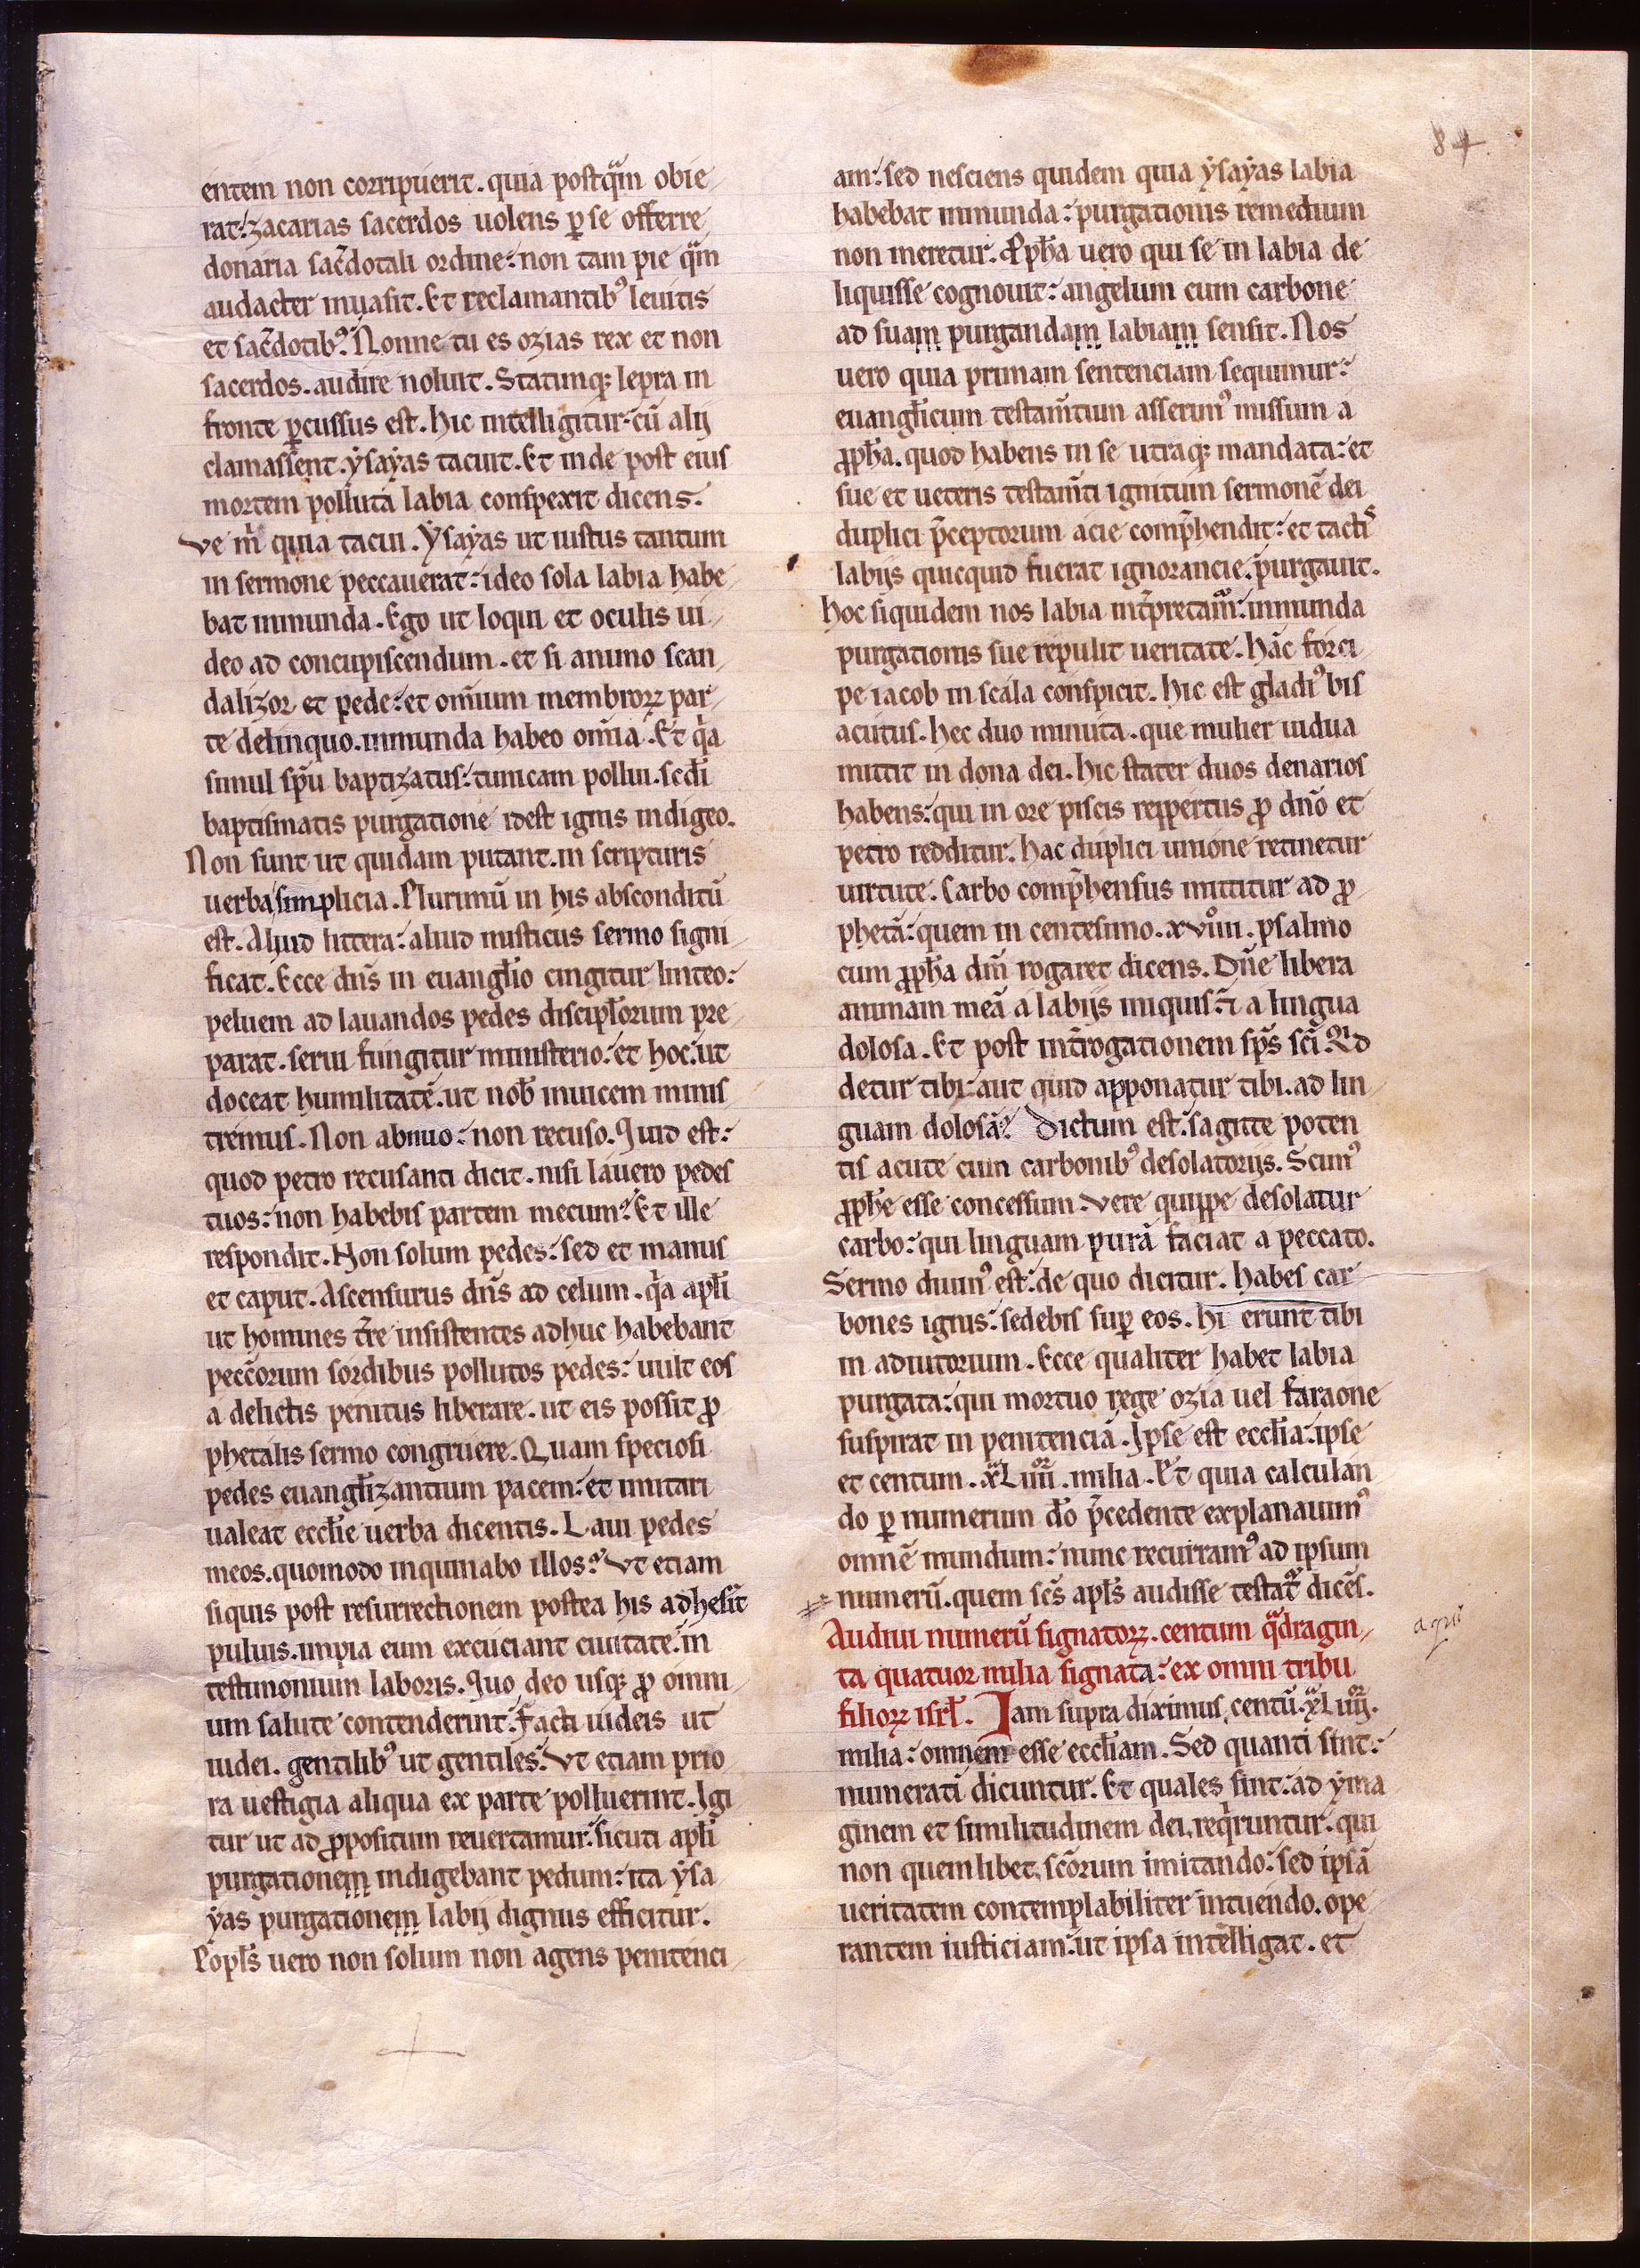 84
entem non corripuerit. quia postq̄m obie
rat: zacarias sacerdos uolens ꝑ se offerre
donaria sac̄dotali ordine: non tam pie q̄m
audacter inuasit. Et reclamantibꝰ leuitis
et sac̄dotibꝰ. Nonne tu es ozias rex et non
sacerdos. audire noluit. Statimqꝫ lepra in
fronte ꝑcussus est. hic intelligitur. cū alij
clamassent. ẏsaẏas tacuit. Et inde post eius
mortem polluta labia conspexit dicens.
ve m̄ quia tacui. Ẏsaẏas ut iustus tantum
in sermone peccauerat: ideo sola labia habe
bat inmunda. Ego ut loqui et oculis ui
deo ad concupiscendum. et si animo scan
dalizor et pede: et om̄ium membroꝝ par
te delinquo. inmunda habeo om̄ia. Et q̄a
simul sp̄u baptizatus: tunicam pollui. scd̄i
baptismatis purgatione idest ignis indigeo.
Non sunt ut quidam putant. in scripturis
uerba simplicia. Plurimū in his absconditū
est. Aliud littera: aliud misticus sermo signi
ficat. Ecce dn̄s in euangl̄io cingitur linteo:
peluem ad lauandos pedes discipl̄orum pre
parat. serui fungitur ministerio. et hoc. ut
doceat humilitatē. ut nob̄ inuicem minis
tremus. Non abnuo: non recuso. Quid est:
quod petro recusanti dicit. nisi lauero pedes
tuos: non habebis partem mecum. Et ille
respondit. Non solum pedes: sed et manus
et caput. Ascensurus dn̄s ad celum. q̄a apl̄i
ut homines t̄re insistentes adhuc habebant
pecc̄orum sordibus pollutos pedes: uult eos
a delictis penitus liberare. ut eis possit ꝓ
phetalis sermo congruere. Quam speciosi
pedes euangl̄izantium pacem: et imitari
ualeat eccl̄ie uerba dicentis. Laui pedes
meos. quomodo inquinabo illos. Vt etiam
siquis post resurrectionem postea his adhesīt
puluis. impia eum excuciant ciuitate. in
testimonium laboris. Quo deo usqꝫ ꝓ omni
um salute contenderint. Facti iudeis ut
iudei. gentilibꝰ ut gentiles. Vt etiam prio
ra uestigia aliqua ex parte polluerint. Igi
tur ut ad ꝓpositum reuertamur. sicuti apl̄i
purgationem indigebant pedum: ita ẏsa
ẏas purgationem labij dignus efficitur.
Popl̄s uero non solum non agens penitenci
am: sed nesciens quidem quia ẏsaẏas labia
habebat inmunda: purgationis remedium
non meretur. Ꝓph̄a uero qui se in labia de
liquisse cognouit: angelum cum carbone
ad suam purgandam labiam sensit. Nos
uero quia primam sentenciam sequimur:
euangl̄icum testam̄tum asserimꝰ missum a
ꝓph̄a. quod habens in se utraqꝫ mandata: et
sue et ueteris testam̄ti ignitum sermonē dei
duplici p̄ceptorum acie comp̄hendit: et tactis
labijs quicquid fuerat ignorancie. purgauit.
Hoc siquidem nos labia int̄pretam̄: inmunda
purgationis sue repulit ueritate. hāc forci
pe iacob in scala conspicit. hic est gladiꝰ bis
acutus. hec duo minuta. que mulier uidua
mittit in dona dei. hic stater duos denarios
habens: qui in ore piscis reppertus ꝓ dn̄o et
petro redditur. hac duplici unione retinetur
uirtute. Carbo comp̄hensus mittitur ad ꝓ
phetā: quem in centesimo. xviiiiº. psalmo
cum ꝓph̄a dm̄ rogaret dicens. Dn̄e libera
animam meā a labijs iniquis: ⁊ a lingua
dolosa. Et post int̄rogationem sp̄s sc̄i. Qͥd
detur tibi: aut quid apponatur tibi. ad lin
guam dolosā. Dictum est. sagitte poten
tis acute cum carbonibꝰ desolatorijs. Scimꝰ
ꝓph̄e esse concessum. vere quippe desolatur
carbo: qui linguam purā faciat a peccato.
Sermo diuinꝰ est: de quo dicitur. habes car
bones ignis: sedebis suꝑ eos. hi erunt tibi
in adiutorium. Ecce qualiter habet labia
purgata: qui mortuo rege ozia uel faraone
suspirat in penitenciā. Ipse est eccl̄ia: ipse
et centum. xͣLiiiiºʳ. milia. Et quia calculan
do ꝑ numerum do̅ p̄cedente explanauimꝰ
omnē mundum: nunc recurramꝰ ad ipsum
numerū. quem sc̄s apl̄s audisse testat̄ dicēs.
Audiui numerū signatoꝝ. centum q̄dragin
ta quatuor milia signata: ex omni tribu
filioꝝ isrl̄. Iam supra diximus, centū. xͣLiiiiºʳ.
milia: omnem esse eccl̄iam. Sed quanti sint:
numerati dicuntur. Et quales sint: ad ẏma
ginem et similitudinem dei, req̄runtur: qui
non quemlibet sc̄orum imitando: sed ipsā
ueritatem contemplabiliter intuendo. ope
rantem iusticiam: ut ipsa intelligat. et
aqui